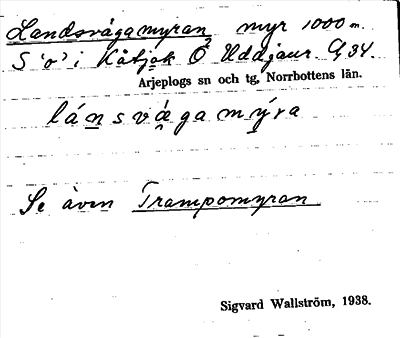 Landsvägamyran myr 1000 m.
S "o" i Kåtjok Ö Uddjaur G 34.
Arjeplogs sn och tg, Norrbottens län.
lánsvǽgamýra
Se även Trampomyran
Sigvard Wallström, 1938.